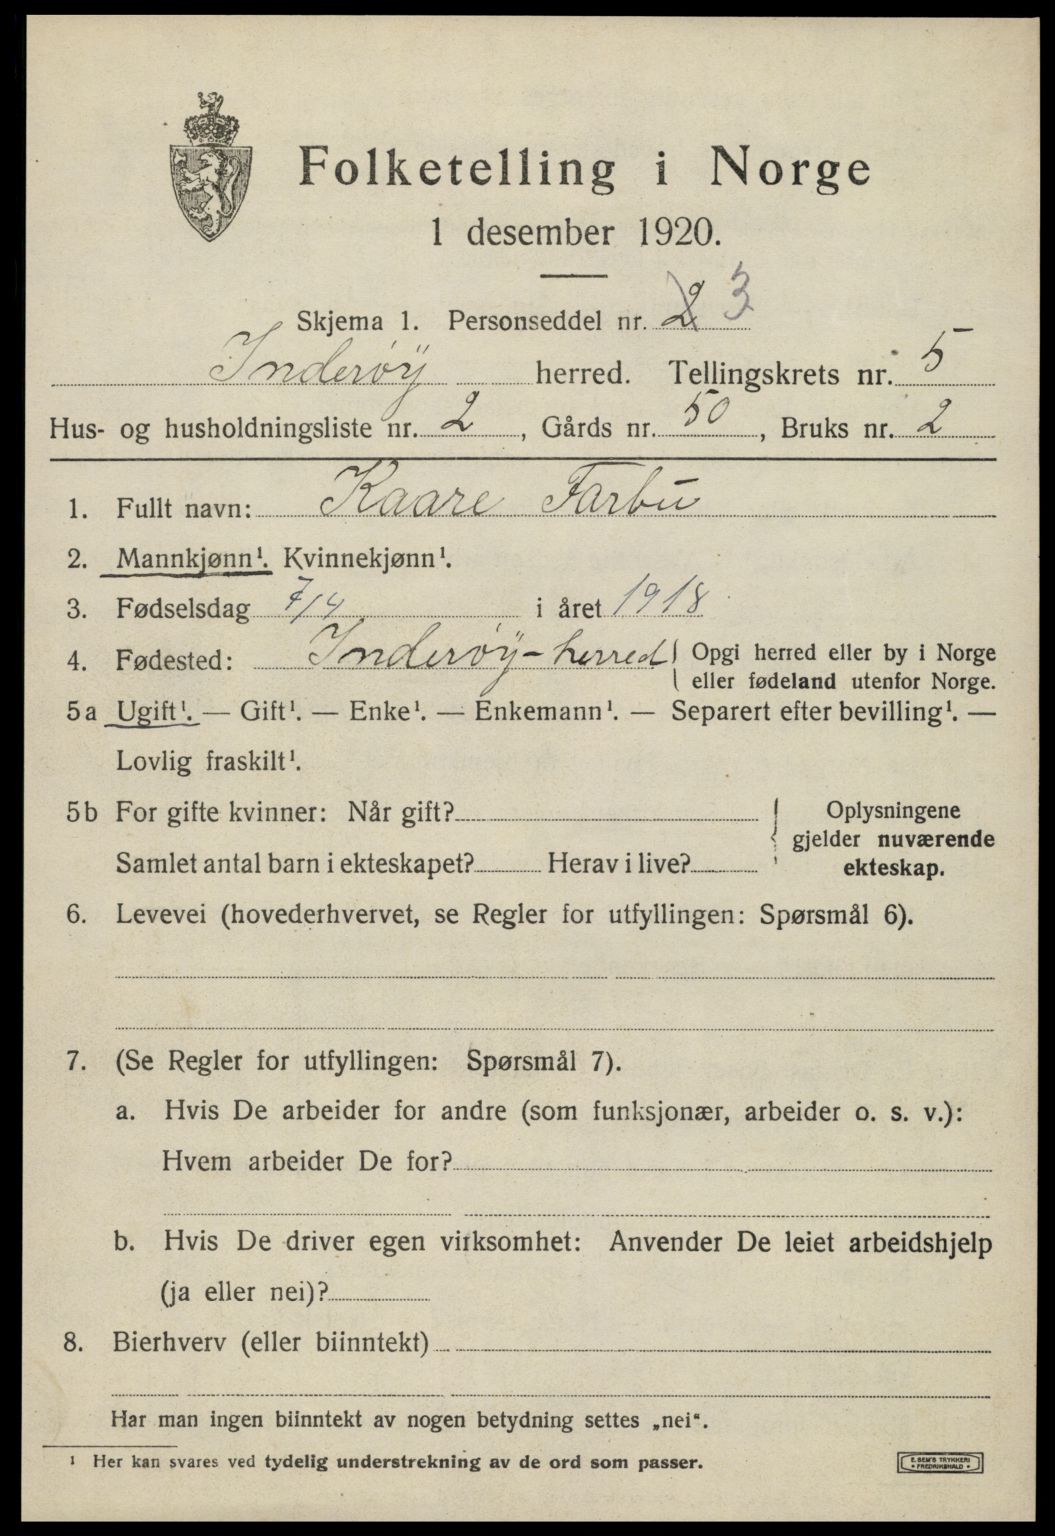 Folketelling i Norge
1 desember 1920.
Skjema 1. Personseddel nr. 2 3
Inderøy herred. Tellingskrets nr. 5
Hus- og husholdningsliste nr. 2, Gårds nr. 50, Bruks nr. 2
1. Fullt navn: Kaare Farbu
2. Mannkjønn¹. Kvinnekjønn¹.
3. Fødselsdag 7/4 i året 1918
4. Fødested: Inderøy-herred Opgi herred eller by i Norge
eller fødeland utenfor Norge.
5a Ugift¹. — Gift¹. — Enke¹. — Enkemann¹. — Separert efter bevilling¹. —
Lovlig fraskilt¹.
5b For gifte kvinner: Når gift? Oplysningene
gjelder nuværende
Samlet antal barn i ekteskapet? Herav i live? ekteskap.
6. Levevei (hovederhvervet, se Regler for utfyllingen: Spørsmål 6).
7. (Se Regler for utfyllingen: Spørsmål 7).
a. Hvis De arbeider for andre (som funksjonær, arbeider o. s. v.):
Hvem arbeider De for?
b. Hvis De driver egen virksomhet: Anvender De leiet arbeidshjelp
(ja eller nei)?
8. Bierhverv (eller biinntekt)
Har man ingen biinntekt av nogen betydning settes „nei“.
¹ Her kan svares ved tydelig understrekning av de ord som passer.
E. SEM'S TRYKKERI
• FREDRIKSHALD •